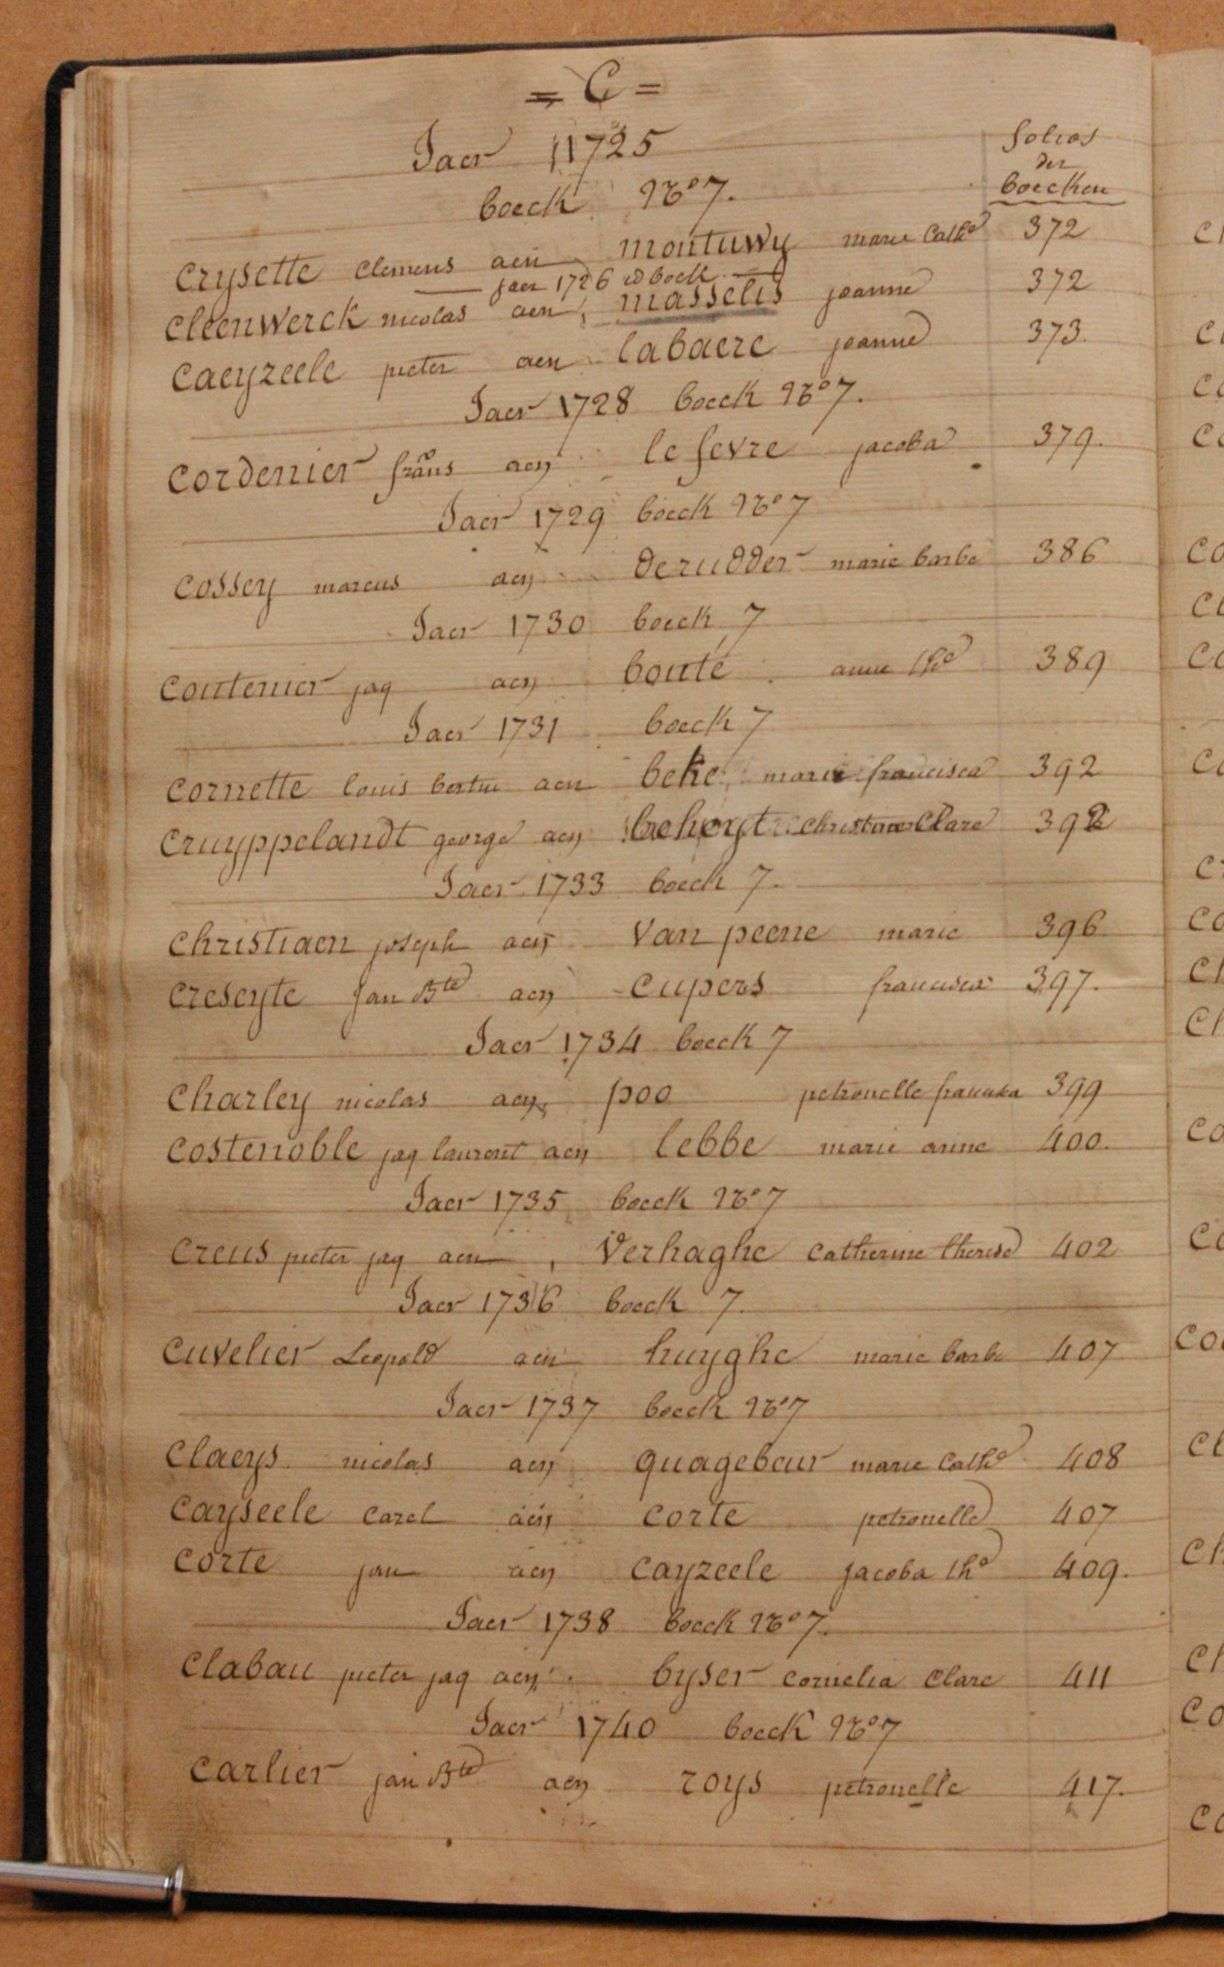 = C =
Jaer 1725
folios
der
boecken
boeck No 7.
crysette clemens aen montuwy marie cathe 372
jaer 1726 id boeck
cleenwerck nicolas aen masselis joanne 372
caeyzeele pieter aen labaere joanne 373
Jaer 1728 boeck No 7.
cordenier frans aen le fevre jacoba 379.
Jaer 1729 boeck No 7
cossey marcus aen derudder marie barbe 386
Jaer 1730 boeck 7
coutenier jaq aen bonte anne the 389
Jaer 1731 boeck 7
cornette louis bertin aen beke marie francisca 392
cruyppelandt george aen beheyt christine Clare 392
Jaer 1733 boeck 7.
christiaen joseph aen van peene marie 396
creseyte jan Bte aen cupers francisca 397.
Jaer 1734 boeck 7
charley nicolas aen poo petronelle 399
costenoble jaq laurent aen lebbe marie anne 400.
Jaer 1735 boeck No 7
creus pieter jaq aen verhaghe catherine therese 402
Jaer 1736 boeck 7.
cuvelier Leopold aen huyghe marie barbe 407
Jaer 1737 boeck No 7
claeys nicolas aen quagebeur marie cathe 408
cayseele carel aen corte petronelle 407
corte jan aen cayzeele jacoba the 409.
Jaer 1738 boeck No 7.
clabau pieter jaq aen byser cornelia clare 411
Jaer 1740 boeck No 7
carlier jan Bte aen roys petronelle 417.